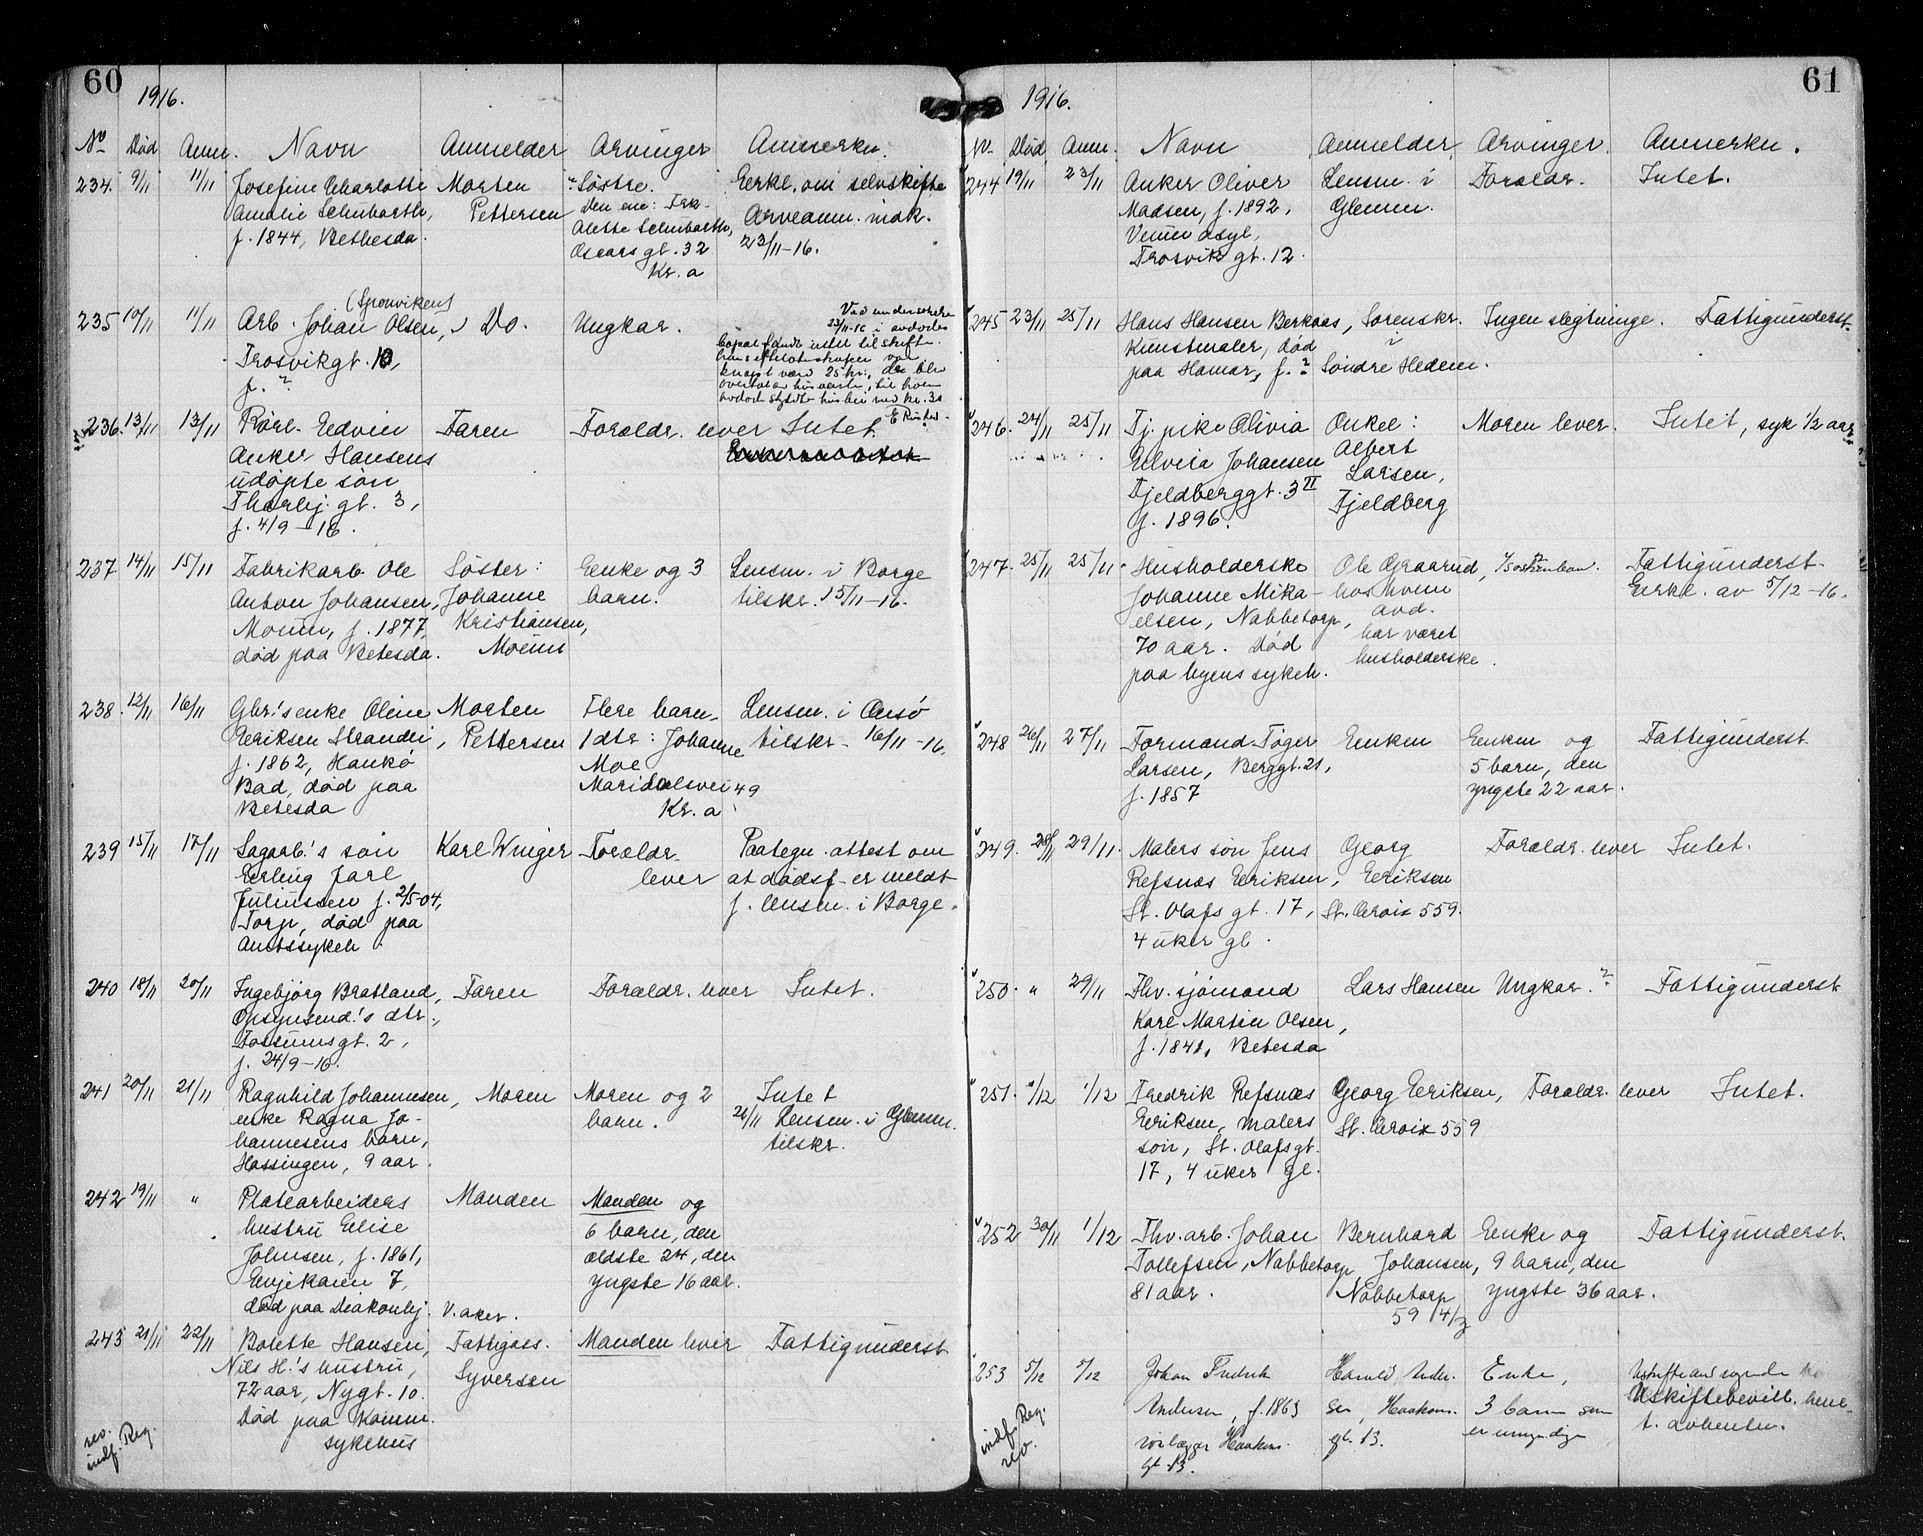 60
1916.
No Død Anm. Navn Anmelder Arvinger Anmerkn.
234. 9/11 11/11 Josefine Charlotte Morten Søstre. Erkl. om selvskifte
Amalie Schubarth, Pettersen Den ene: Frk. Arveanm. mdk.
f. 1844, Bethesda. Alette Schubarth, 23/11-16.
Oscars gt. 32
Kr.a
235 10/11 11/11 Arb. Johan Olsen, (Sponviken) Do. Ungkar. Ved undersøkelse
Trosvikgt. 10, 23/11-16 i avdødes
f. ? bopæl fandt intet til skifte.
hans efterladenskaper var
knapt værd 25 kr., de blev
overtat av husverten, til hvem
avdøde skyldte husleie med kr. 30
236. 13/11 13/11 Rørl. Edvin Faren Forældr. lever Intet.
Anker Hansens
udøpte søn
Thorbj. gt. 3,
f. 4/9-16.
237 14/11 15/11 Fabrikarb. Ole Søster: Enke og 3 Lensm. i Borge
Anton Johansen, Johanne barn. tilskr. 15/11-16.
Moum, f. 1877, Kristiansen,
død paa Betesda. Moum
238. 12/11 16/11 Gbr.'s enke Oline Morten Flere barn. Lensm. i Onsø
Eriksen Strandli, Pettersen 1 dtr: Johanne tilskr. 16/11-16.
f. 1862, Hankø Moe
Bad, død paa Maridalsvei 49
Betesda Kr.a
239 15/11 17/11 Sagarb.'s søn Karl Winger Forældr. Paategn. attest om
Erling Jarl lever at dødsf. er meldt
Juliussen f. 2/5-04, f. Lensm. i Borge.
Torp, død paa
Amtssykeh.
240 18/11 20/11 Ingebjørg Bratland, Faren Forældr. lever Intet.
Opsynsmd.'s dtr.,
Fossumsgt. 2,
f. 24/9-16.
241 20/11 21/11 Ragnhild Johannesen, Moren Moren og 2 Intet
enke Ragna Jo- barn. 21/11 Lensm. i Glemm.
hannesens barn, tilskr.
Hassingen, 9 aar.
242 19/11 " Platearbeiders Manden Manden og
hustru Elise 6 barn, den
Johnsen, f. 1861, ældste 24, den
Enjekaien 7, yngste 16 aar.
død paa Diakonhj. V. aker.
243 21/11 22/11 Bolette Hansen, Fattigass. Manden lever Fattigunderst.
Nils H.'s hustru, Syversen
72 aar, Nygt. 10.
Død paa Komm.
sykehus
rev.
indf. Reg.
61
1916.
No Død Anm. Navn Anmelder Arvinger Anmerkn.
244 19/11 23/11 Anker Oliver Lensm. i Forældr. Intet.
Madsen, f. 1892, Glemm.
Venner asyl,
Trosvik gt. 12.
245 23/11 25/11 Hans Hansen Berkaas, Sorenskr. Ingen slegtninge. Fattigunderst.
Kunstmaler, død i
paa Hamar, f. ? Søndre Hedem.
246. 24/11 25/11 Tj. pike Olivia Onkel: Moren lever. Intet, syk 1/2 aar
Elvira Johansen Albert
Fjeldberggt. 3 II Larsen,
f. 1896. Fjeldberg
247. 25/11 25/11 Husholderske Ole Graarud, Fattigunderst.
Johanne Mika- hos hvem Erkl. av 5/12-16.
elsen, Nabbetorp, avd.
70 aar. Død har været
paa byens sykeh. husholderske.
248 26/11 27/11 Formand Tøger Enken Enken og Fattigunderst.
Larsen, Berggt. 21, 5 barn, den
f. 1857 yngste 22 aar.
249. 28/11 29/11. Malers søn Jens Georg Forældr. lever Intet.
Refsnæs Eriksen, Eriksen
St. Olafs gt. 17, St. Croix 559.
4 uker gl.
250. " 29/11 Fhv. sjømand Lars Hansen Ungkar. ? Fattigunderst.
Karl Martin Olsen,
f. 1841, Betesda
251. 1/12 1/12 Fredrik Refsnæs Georg Eriksen, Forældr. lever Intet.
Eriksen, malers St. Croix 559
søn, St. Olafsgt.
17, 4 uker gl.
252 30/11 1/12 Fhv. arb. Johan Bernhard Enke og Fattigunderst.
Tollefsen, Nabbetorp Johansen, 9 barn, den
81 aar. Nabbetorp yngste 36 aar.
59 4/3
253 5/12 5/12 Johan Fredrik Harald Ander- Enke,
Andersen, f. 1863 sen, Haakons. 3 barn som Uskiftebevill.
Haakons. gt. 13. er umyndige
gt. 13.
indf. Reg.
rev.